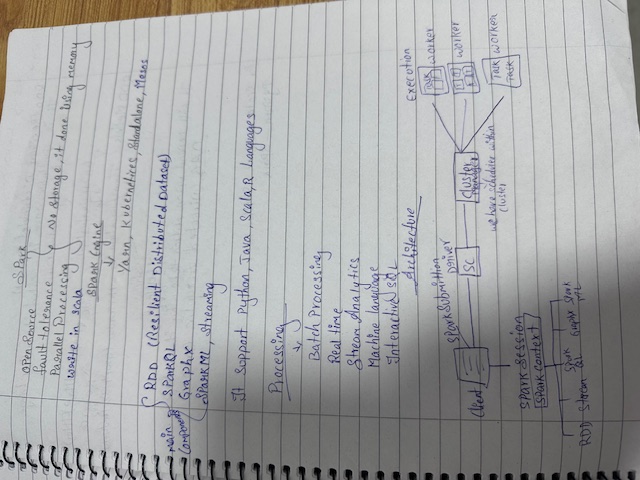 Spark
Open Source
fault tolerance
Parallel Processing
write in scala
No storage, it done using memory
Spark Engine
Yarn, Kubernetices, Standalone, Mesos
Main Components
RDD (Resilient Distributed Dataset)
SparkQL
Graphx
SparkML, Streaming
It Support Python, Java, Scala, R Languages
Processing
Batch Processing
Real time
Stream Analytics
Machine language
Interactive SQL
Architecture
Execution
Client
Spark Submittion
Driver
SC
Cluster Manager
we have scheduler within cluster
Task
worker
worker
Task
Task
worker
Spark Session
Spark context
RDD Stream Spark QL Graphx Spark ML